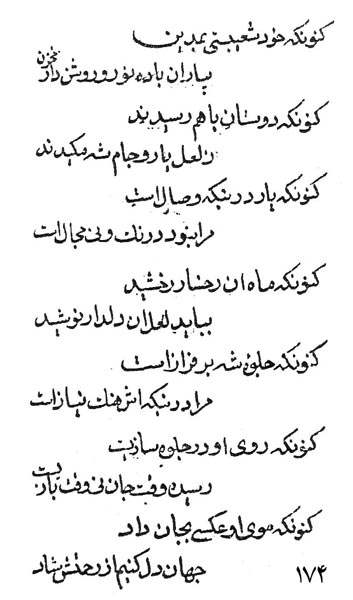 کنونکه خود شعیبستی بمدین
بباران باده نور و روشن دار مخزن
کنونکه دوستان با هم رسیدند
ز لعل یار و جام شه مکیدند
کنونکه یار در بنکه وصال است
مرا نبود درنک و نی مجال است
کنونکه ماه ان رخسار رخشید
بباید لعل ان دلدار نوشید
کنونکه جلوه شه بر فراز است
مرا در بنکه اش هنک نیاز است
کنونکه روی او در جلوه سازیست
رسیده وقت جان نی وقت بازیست
کنونکه موی او عکسی بجان داد
جهان دل کنیم از رحمتش شاد
۱۷۴